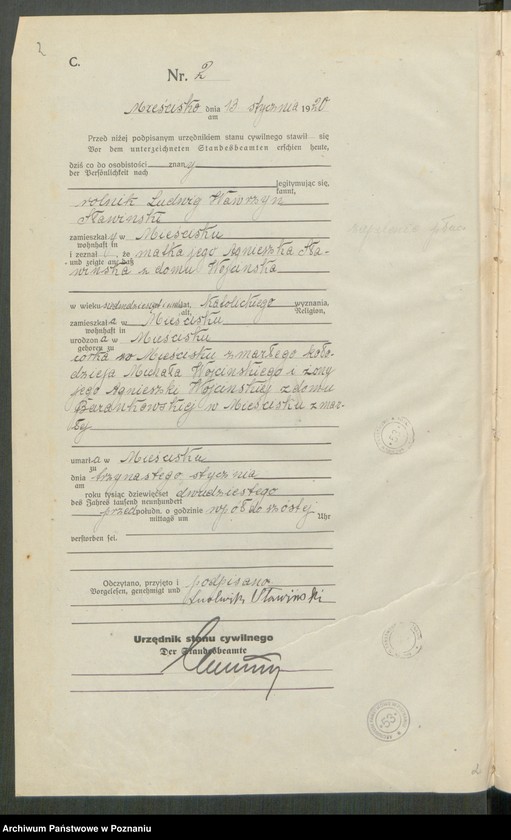 2
C.
Nr. 2
Mieścisko dnia 13 stycznia 1920
am
Przed niżej podpisanym urzędnikiem stanu cywilnego stawił się
Vor dem unterzeichneten Standesbeamten erschien heute,
dziś co do osobistości znany
der Persönlichkeit nach
legitymując się,
kannt,
rolnik Ludwig Wawrzyn
Sławiński
zamieszkały w Mieścisku
wohnhaft in
i zeznał, że matka jego Agnieszka Sła-
und zeigte an, daß
wińska z domu Wojcińska
w wieku lat, katolickiego wyznania,
alt, Religion,
zamieszkała w Mieścisku
wohnhaft in
urodzona w Mieścisku
geboren zu
córka w Mieścisku zmarłego koło-
dzieja Michała Wojcińskiego i żony
jego Agnieszki Wojcińskiej z domu
Barankowskiej w Mieścisku zmar-
łej
umarła w Mieścisku
zu
dnia trzynastego stycznia
am
roku tysiąc dziewięćset dwudziestego
des Jahres tausend neunhundert
przed połudn. o godzinie wpół do szóstej
mittags um Uhr
verstorben sei.
Odczytano, przyjęto i podpisano
Vorgelesen, genehmigt und Ludwik Sławinski
Urzędnik stanu cywilnego
Der Standesbeamte
53
2
Archiwum Państwowe w Poznaniu